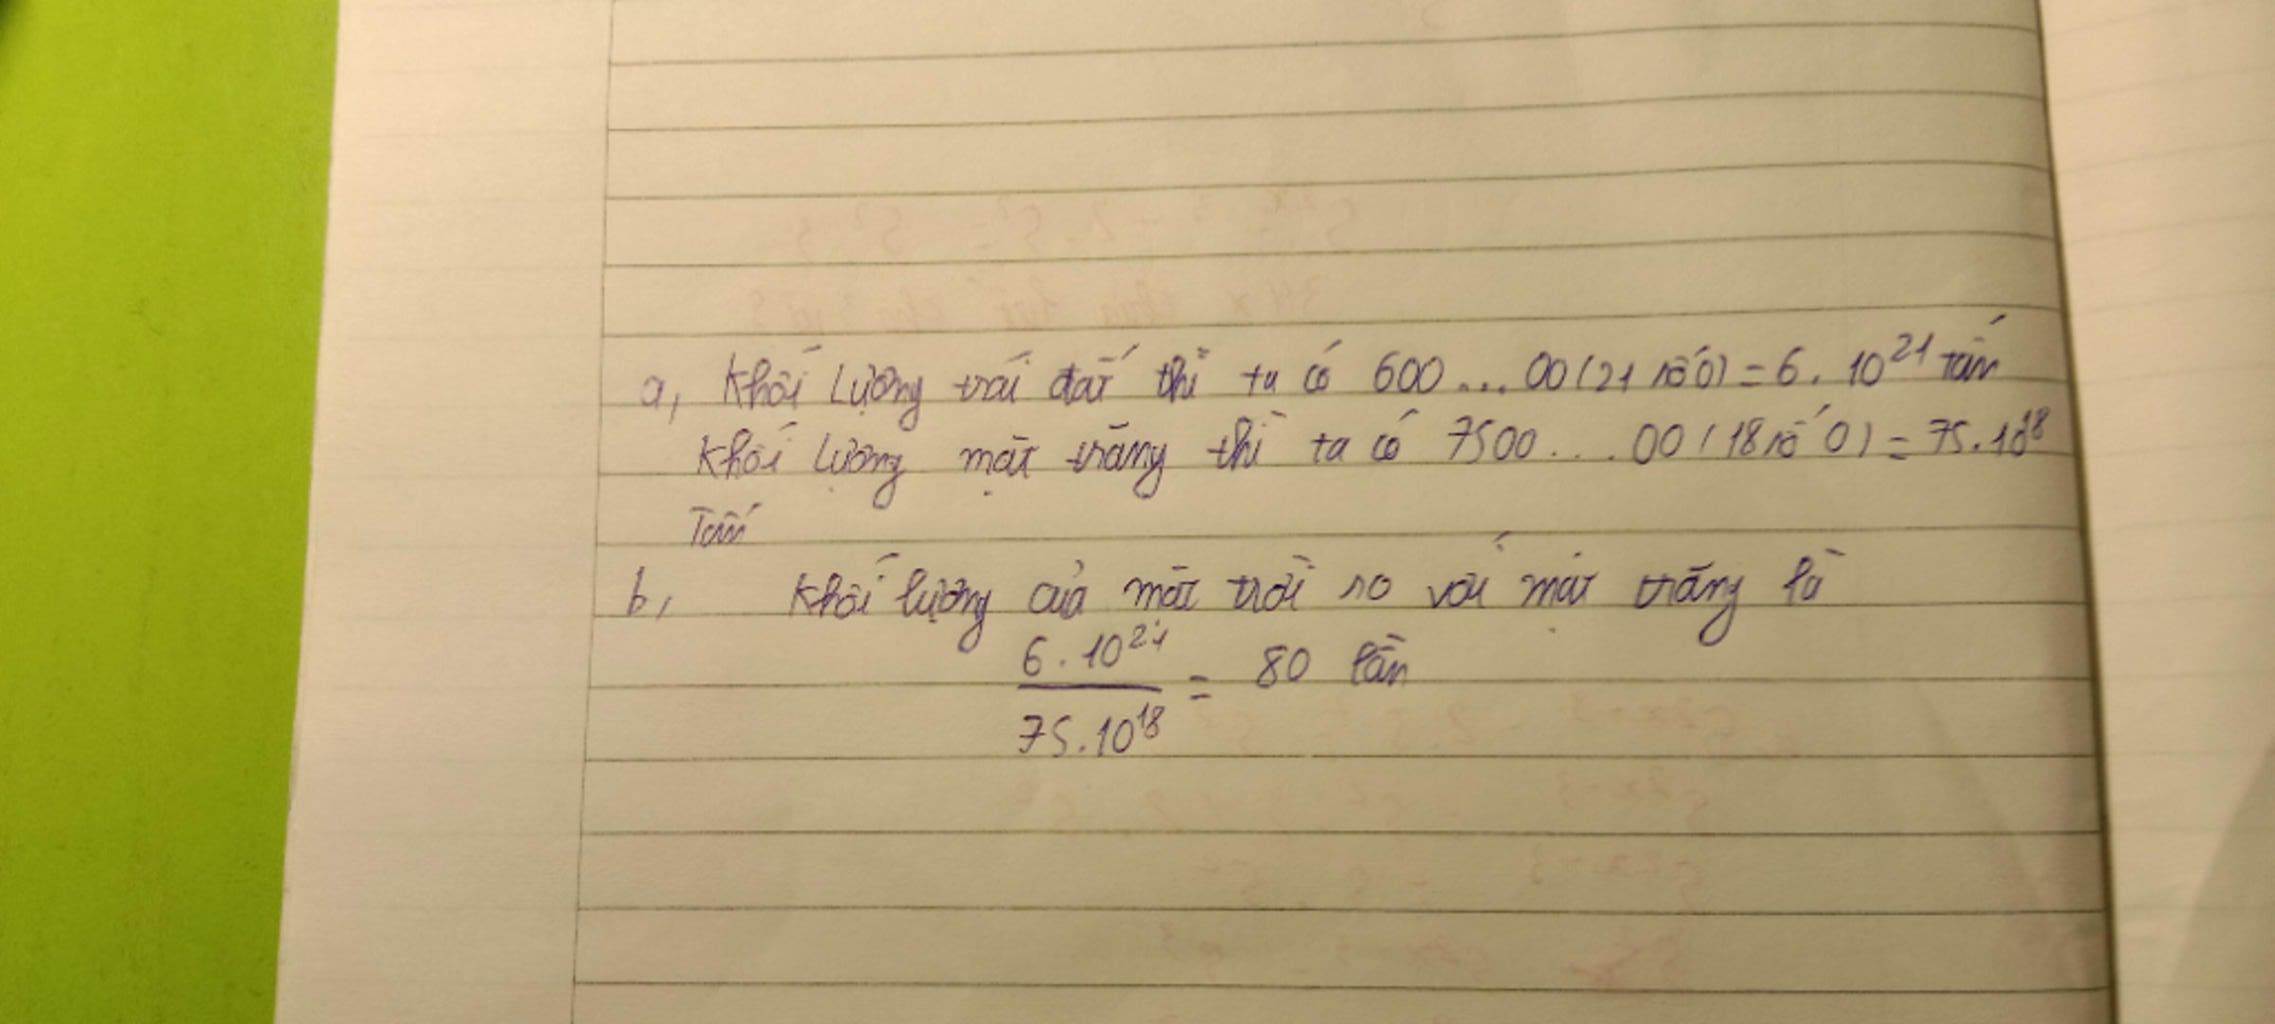 a, Khối lượng trái đất thì ta có 600... 00 (21 số 0) = 6. 10²¹ tấn
Khối lượng mặt trăng thì ta có 7500....00 (18 số 0) = 75.10¹⁸
Tấn
b, Khối lượng của mặt trời so với mặt trăng là
6.10²¹ / 75.10¹⁸ = 80 lần